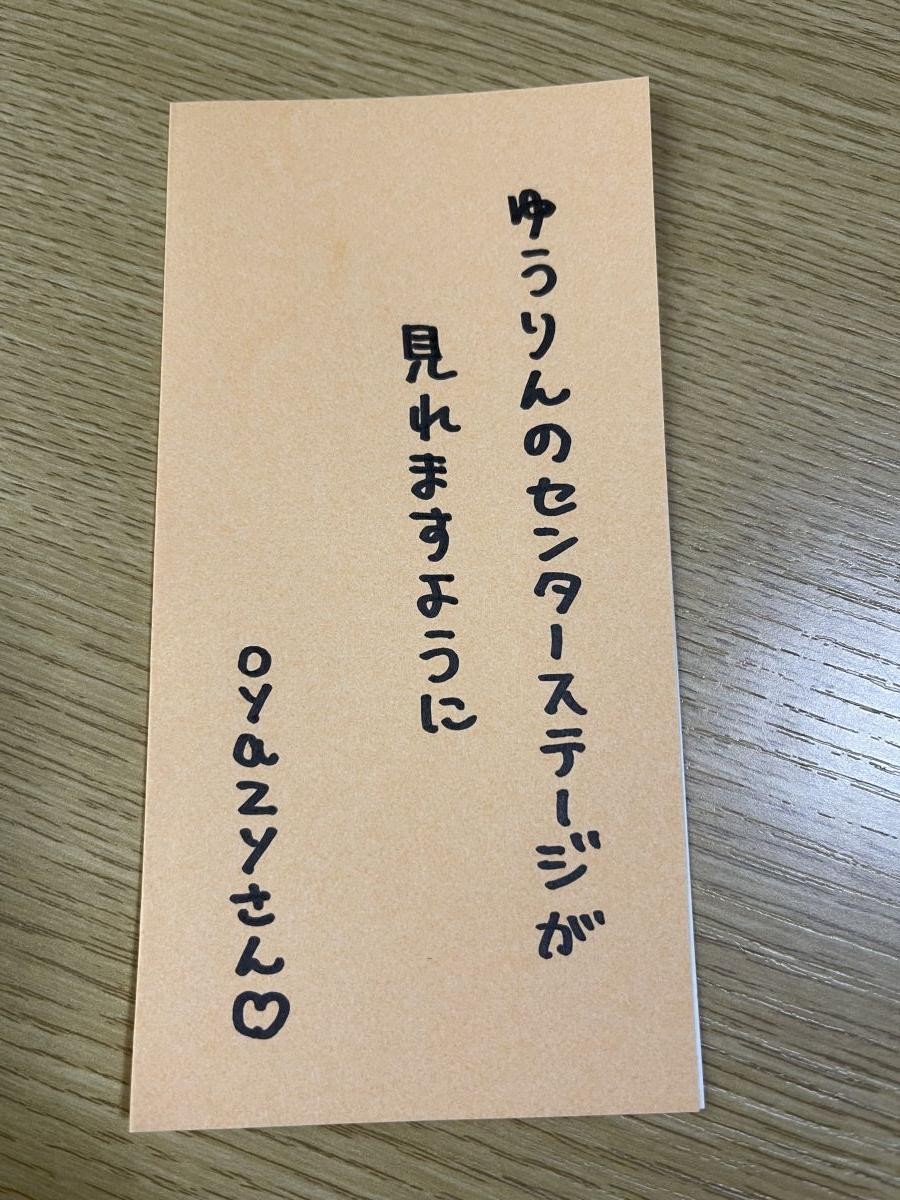 ゆうりんのセンターステージが
見れますように
oyazyさん♡